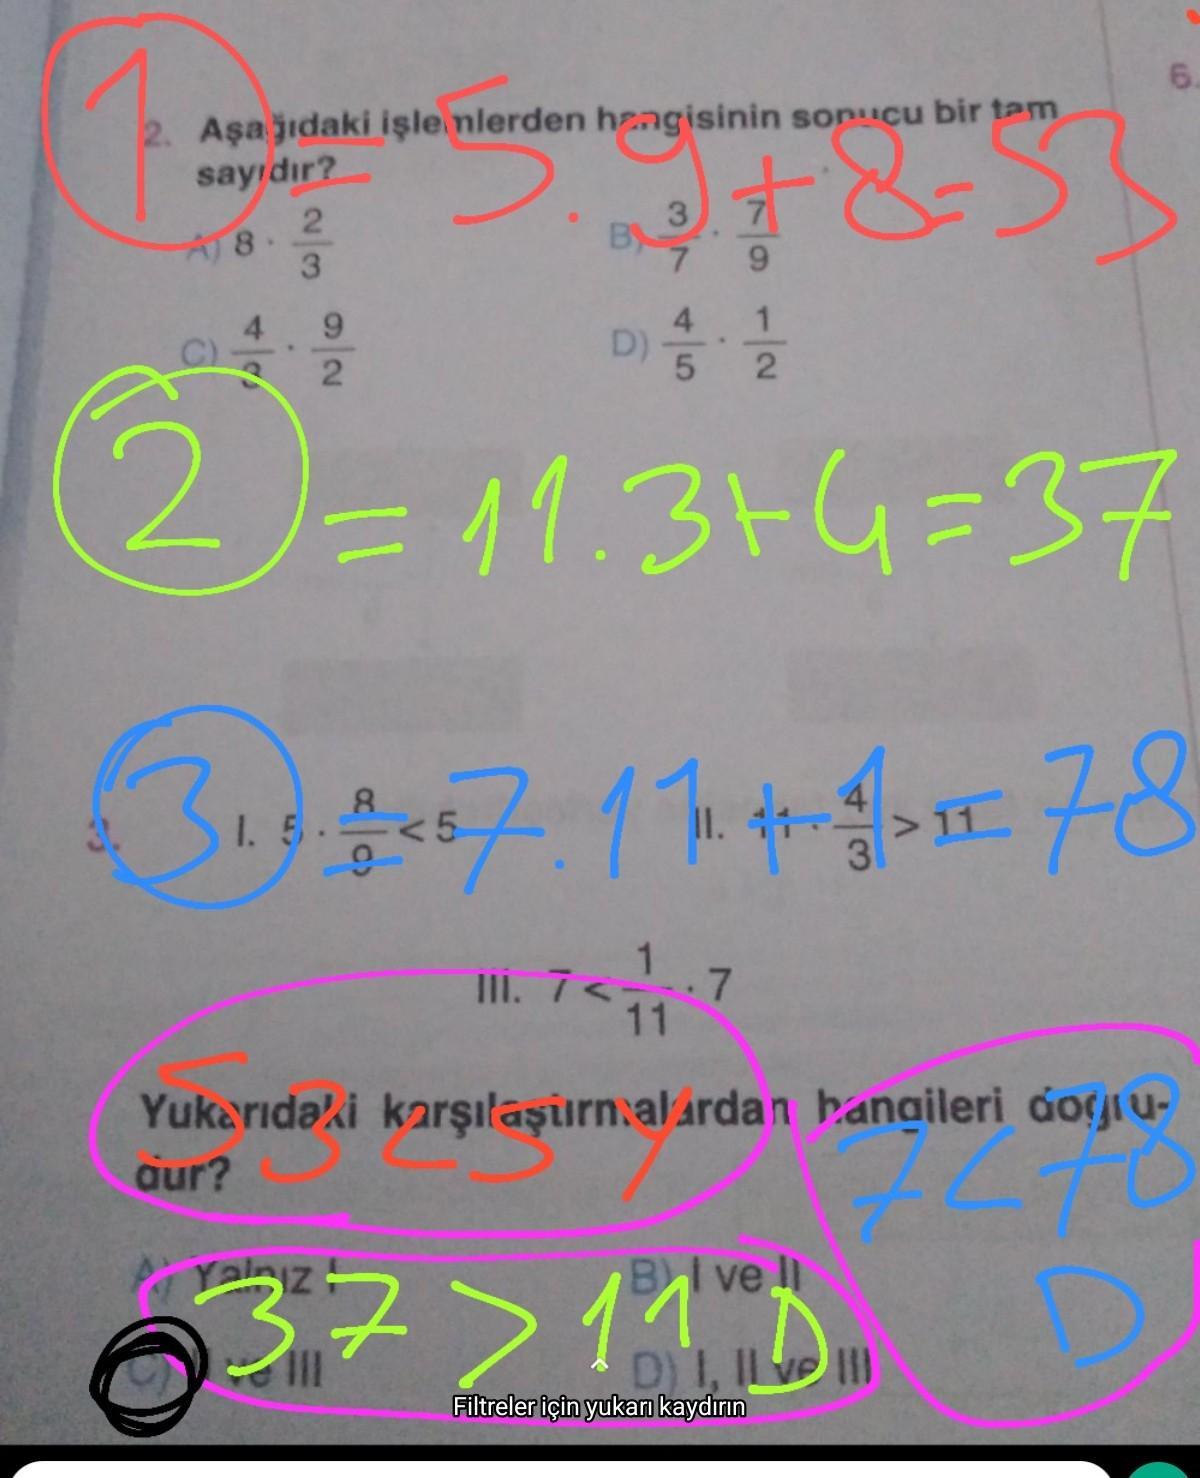 6.
1 = 5.9+8=53
2. Aşağıdaki işlemlerden hangisinin sonucu bir tam
sayıdır?
A) 8 · 2/3 B) 3/7 · 7/9
C) 4/3 · 9/2 D) 4/5 · 1/2
2 = 11.3+4=37
3 = 7.11+1=78
3. I. 5 · 8/9 < 5 II. 11 · 4/3 > 11
III. 7 < 1/11 · 7
Yukarıdaki karşılaştırmalardan hangileri doğru-
dur?
53<5 Y
7<78
D
A) Yalnız I B) I ve II
37 > 11 D
C) II ve III D) I, II ve III
Filtreler için yukarı kaydırın